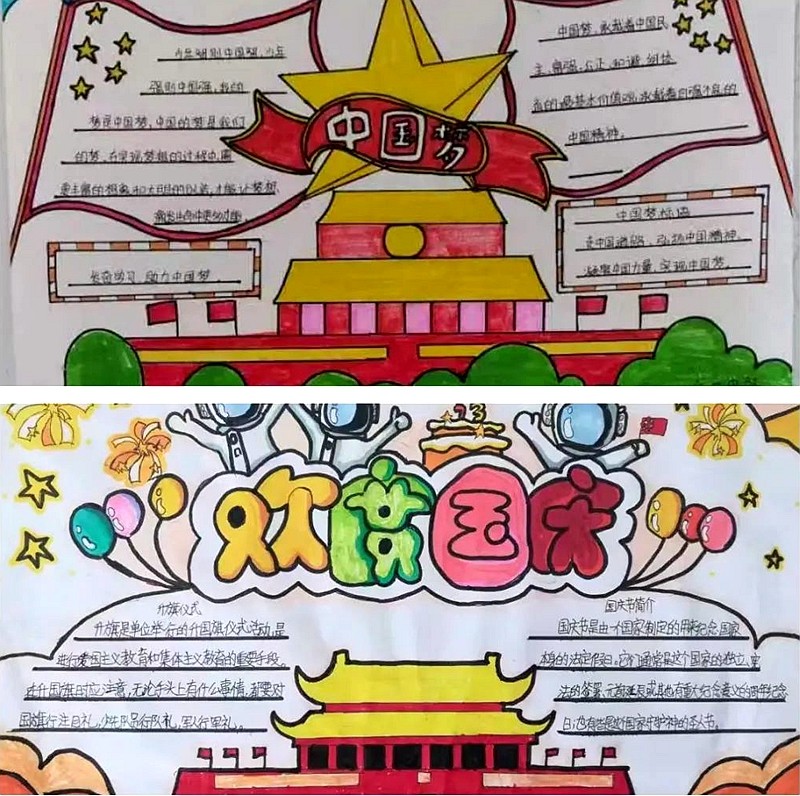 少年强则中国强，少年
强则中国强，我的
梦是中国梦，中国的梦是我们
的梦，在实现梦想的过程中，需
要丰富的想象和大胆的创造，才能让梦想
传奇学习，助力中国梦
中国梦
中国梦，承载着中国民
主，富强，公正，和谐，创
的最基本价值观，承载着自强不息的
中国精神。
中国梦标语
走中国道路、弘扬中国精神、
凝聚中国力量，实现中国梦。
23
欢度国庆
升旗仪式
升旗是单位举行的升国旗仪式活动，是
进行爱国主义教育和集体主义教育的重要手段。
进升国旗时应注意，无论手头上有什么事情，都要对
国旗行注目礼，少先队员行队礼，军人行军礼。
国庆节简介
国庆节是由一个国家制定的用来纪念国家
本身的法定假日。它们通常是这个国家的独立、宪
法的签署、元首诞辰或其他有重大纪念意义的周年纪念
日；也有些是对国家守护神的圣人节。